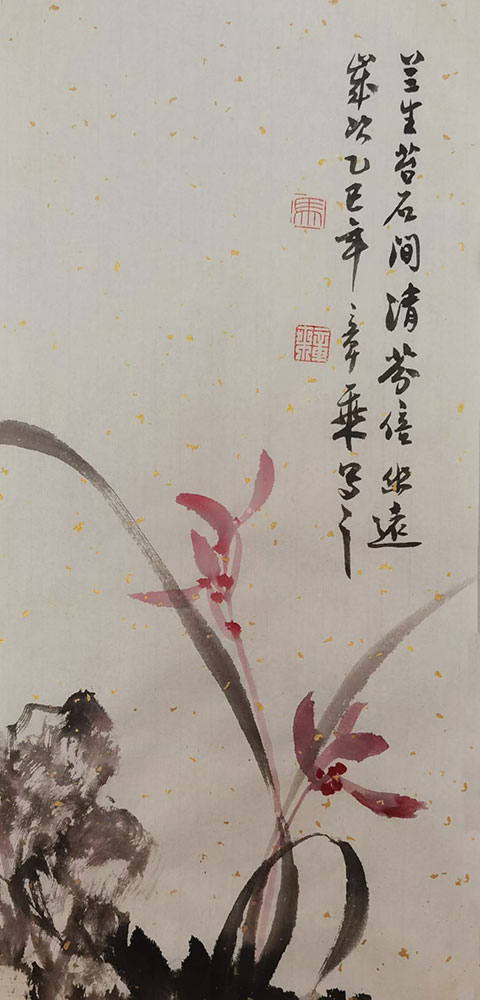 兰生苔石间清芬倍幽远
歲次乙巳年章乘写之